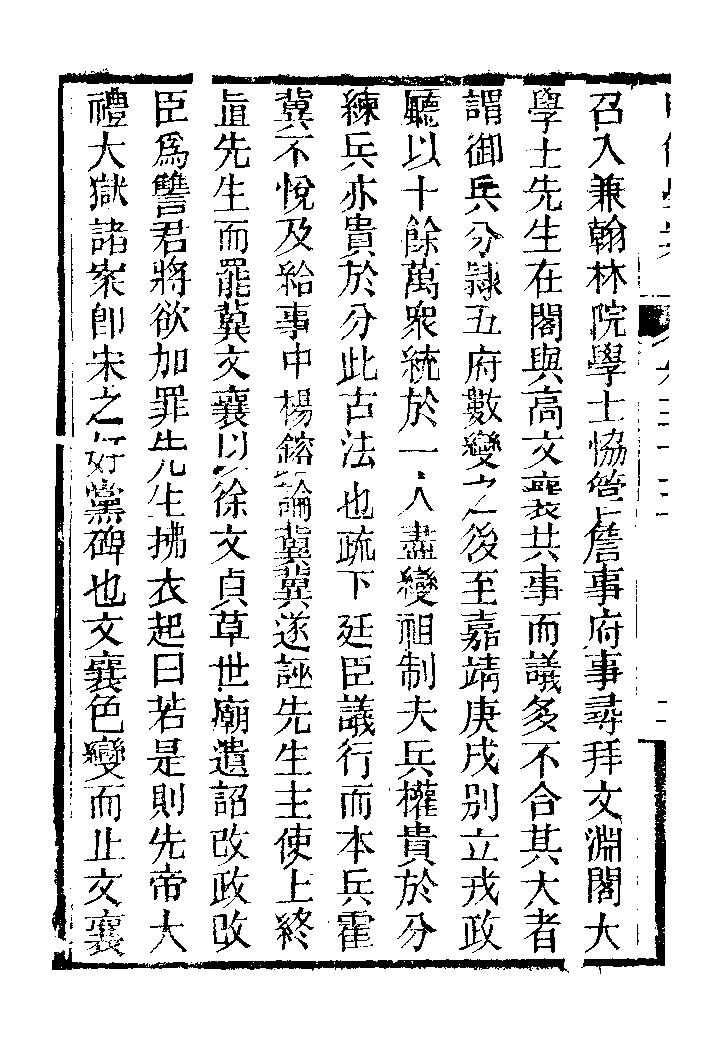 召入兼翰林院學士協管詹事府事尋拜文淵閣大
學士先生在閣與高文襄共事而議多不合其大者
謂御兵分隸五府數變之後至嘉靖庚戌別立戎政
廳以十餘萬衆統於一人盡變祖制夫兵權貴於分
練兵亦貴於分此古法也疏下廷臣議行而本兵霍
冀不悅及給事中楊鎔論冀冀遂誣先生主使上終
直先生而罷冀文襄以徐文貞草世廟遺詔改政改
臣爲讐君將欲加罪先生拂衣起曰若是則先帝大
禮大獄諸案卽宋之奸黨碑也文襄色變而止文襄